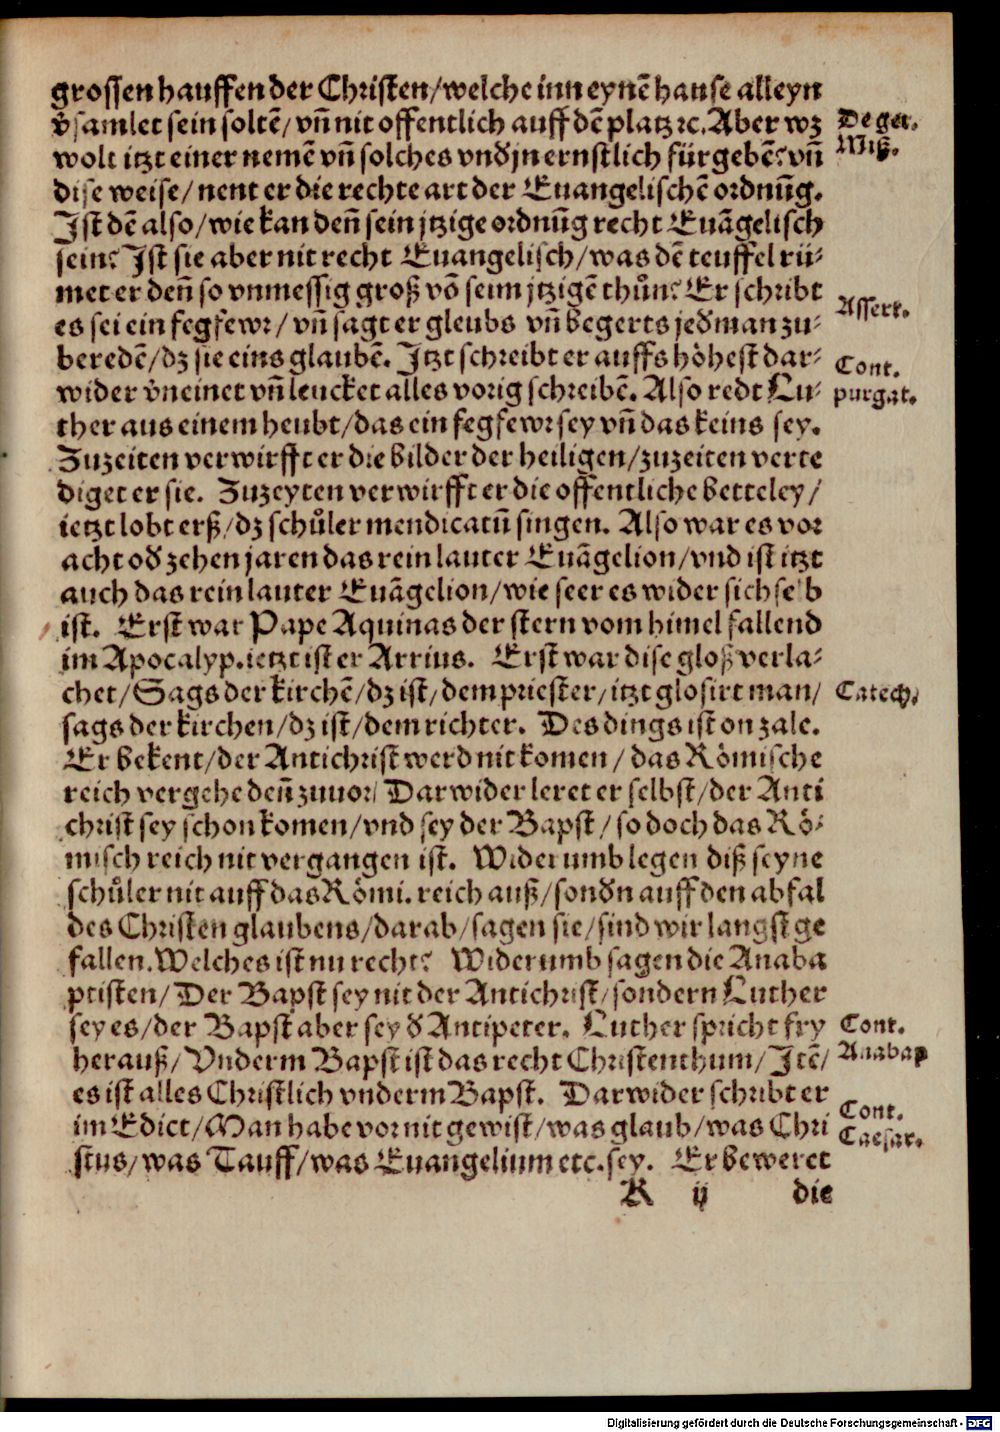 grossen hauffen der Christen/welche inn eynē hause alleyn
v̄samlet sein soltē/ vn̄ nit offentlich auff dē platz ꝛc. Aber wz
De ger. Miß.
wolt itzt einer nemē vn̄ solches vnd jn ernstlich fürgebē? vn̄
dise weise/ nent er die rechte art der Euangelischē ordnūg.
Ist dē also/wie kan den̄ sein jtzige ordnūg recht Euāgelisch
sein? Ist sie aber nit recht Euangelisch/was dē teuffel rü-
met er den̄ so vnmessig groß vō seim jtzigē thůn? Er schribt
es sei ein fegfewr/ vn̄ sagt er gleubs vn̄ begerts jedman zu-
Assert.
beredē/dz sie eins glaubē. Jtzt schreibt er auffs höhest dar-
wider v̄neinet vn̄ leucket alles vorig schreibē. Also redt Lu-
Cont. purgat.
ther aus einem heubt/das ein fegfewr sey vn̄ das keins sey.
Zuzeiten verwirfft er die bilder der heiligen/zuzeiten verte
diget er sie. Zuzeyten verwirfft er die offentliche betteley/
ietzt lobt erß/dz schůler mendicatū singen. Also war es vor
acht od zehen jaren das rein lauter Euāgelion/vnd ist itzt
auch das rein lauter Euāgelion/wie seer es wider sich selb
ist. Erst war Pape Aquinas der stern vom himel fallend
im Apocalyp. ietzt ist er Arrius. Erst war dise gloß verla-
chet/Sags der kirchē/dz ist/dem priester/itzt glosirt man/
Catech.
sags der kirchen/dz ist/dem richter. Des dings ist on zale.
Er bekent/der Antichrist werd nit komen/ das Römische
reich vergehe den̄ zuuor/ Darwider leret er selbst/der Anti
christ sey schon komen/vnd sey der Bapst/ so doch das Rö-
misch reich nit vergangen ist. Widerumb legen diß seyne
schůler nit auff das Römi. reich auß/sondn auff den abfal
des Christen glaubens/darab/sagen sie/sind wir langst ge
fallen. Welches ist nu recht? Widerumb sagen die Anaba
ptisten/ Der Bapst sey nit der Antichrist/sondern Luther
sey es/der Bapst aber sey d Antipeter. Luther spricht fry
herauß/ Vnderm Bapst ist das recht Christenthum/ Jtē/
Cont. Anabap
es ist alles Christlich vnderm Bapst. Darwider schribt er
im Edict/Man habe vor nit gewist/was glaub/was Chri
Cont. Caesar.
stus/was Tauff/was Euangelium etc. sey. Er beweret
R ij die
Digitalisierung gefördert durch die Deutsche Forschungsgemeinschaft - DFG